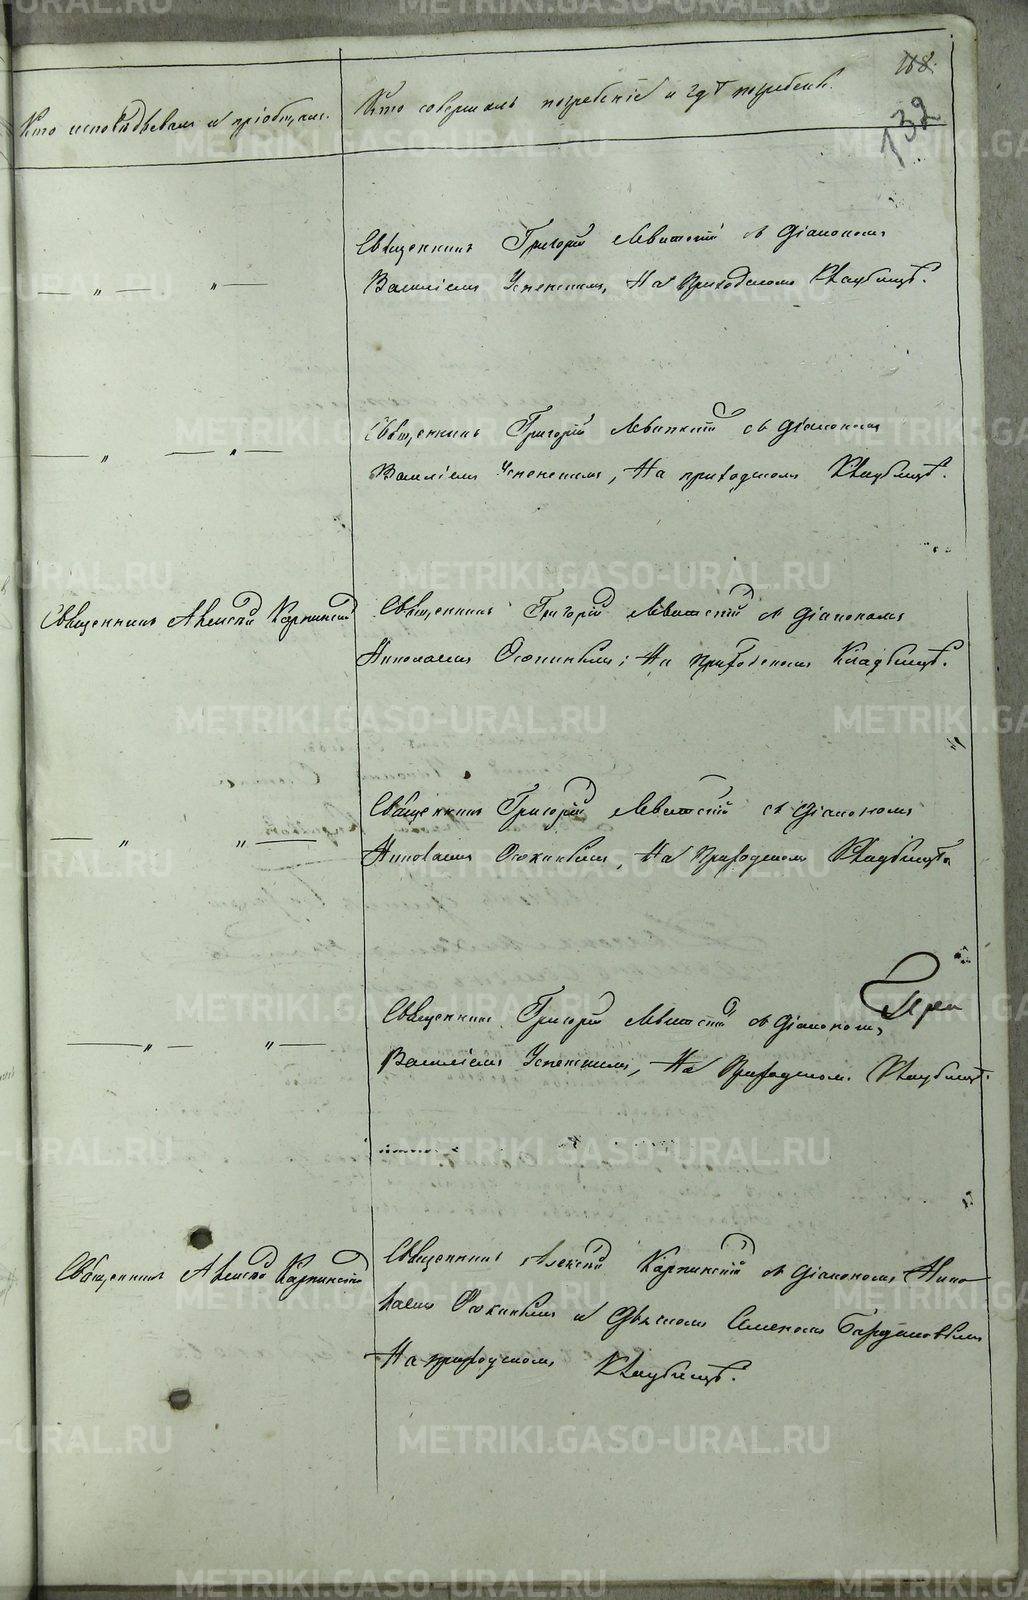 168.
132
Кто исповѣдывалъ и пріобщалъ.
Кто совершалъ погребеніе и гдѣ погребенъ.
— „ — „ —
Священникъ Григорій Левитскій съ Діакономъ
Василіемъ Успенскимъ, На Приходскомъ Кладбищѣ.
— „ — „ —
Священникъ Григорій Левитскій съ Діакономъ
Василіемъ Успенскимъ, На приходскомъ Кладбищѣ.
Священникъ Алексій Карпинскій
Священникъ Григорій Левитскій съ Діакономъ
Николаемъ Осокинымъ; На Приходскомъ Кладбищѣ.
— „ „ —
Священникъ Григорій Левитскій съ Діакономъ
Николаемъ Осокинымъ, На Приходскомъ Кладбищѣ.
Іереи
— „ — „ —
Священникъ Григорій Левитскій съ Діакономъ
Василіемъ Успенскимъ, На Приходскомъ Кладбищѣ.
Священникъ Алексій Карпинскій
Священникъ Алексій Карпинскій съ Діакономъ Нико
лаемъ Осокинымъ и Дьячкомъ Семеномъ
На приходскомъ Кладбищѣ.
METRIKI.GASO-URAL.RU